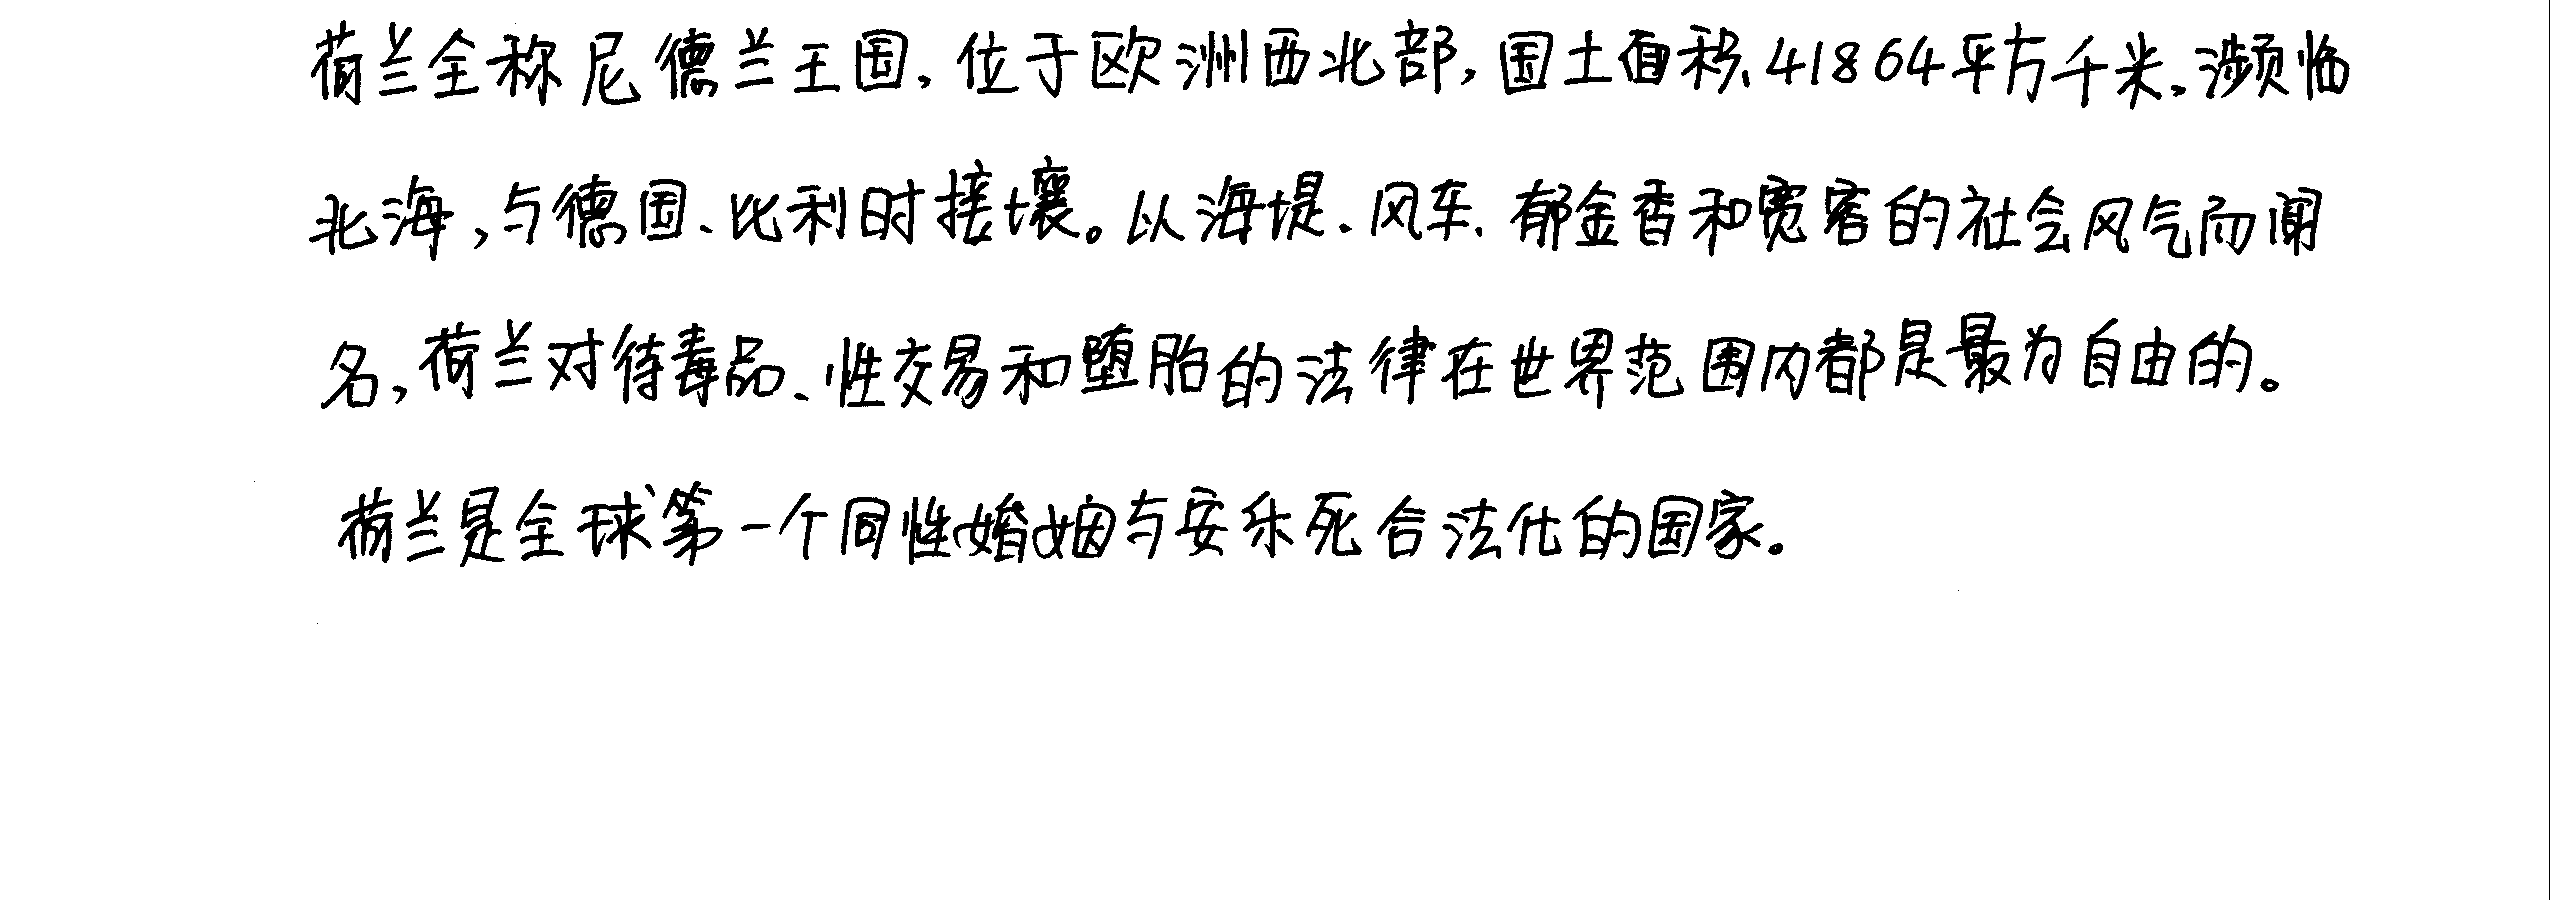 荷兰全称尼德兰王国,位于欧洲西北部,国土面积41864平方千米,濒临
北海,与德国、比利时接壤。以海堤、风车、郁金香和宽容的社会风气而闻
名,荷兰对待毒品、性交易和堕胎的法律在世界范围内都是最为自由的。
荷兰是全球第一个同性婚姻与安乐死合法化的国家。